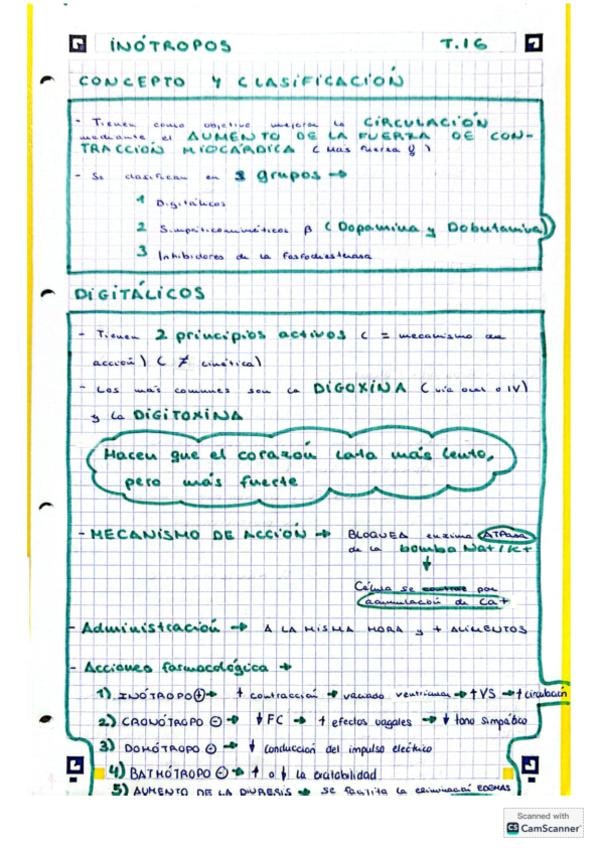 INÓTROPOS T.16
CONCEPTO Y CLASIFICACIÓN
- Tienen como objetivo mejorar la CIRCULACIÓN
mediante el AUMENTO DE LA FUERZA DE CON-
TRACCIÓN MIOCÁRDICA ( Más fuerza )
- Se clasifican en 3 grupos →
1 Digitálicos
2 Simpáticomiméticos β ( Dopamina y Dobutamina)
3 Inhibidores de la fosfodiesterasa
DIGITÁLICOS
- Tienen 2 principios activos ( = mecanismo de
acción) ( ≠ cinética)
- Los más comunes son la DIGOXINA ( vía oral o IV)
y la DIGITOXINA
Hacen que el corazón lata más lento,
pero más fuerte
- MECANISMO DE ACCIÓN → BLOQUEA enzima ATPasa
de la bomba Na+/K+
↓
Célula se contrae por
acumulación de Ca+
- Administración → A LA MISMA HORA y + ALIMENTOS
- Acciones farmacológica →
1) INÓTROPO ⊕ → ↑ contracción → vaciado ventricular → ↑ VS → ↑ circulación
2) CRONÓTROPO ⊖ → ↓ FC → ↑ efectos vagales → ↓ tono simpático
3) DOMÓTROPO ⊖ → ↓ conducción del impulso eléctrico
4) BATMÓTROPO ⊖ → ↑ o ↓ la excitabilidad
5) AUMENTO DE LA DIURESIS → se facilita la eliminación EDEMAS
Scanned with
CS CamScanner